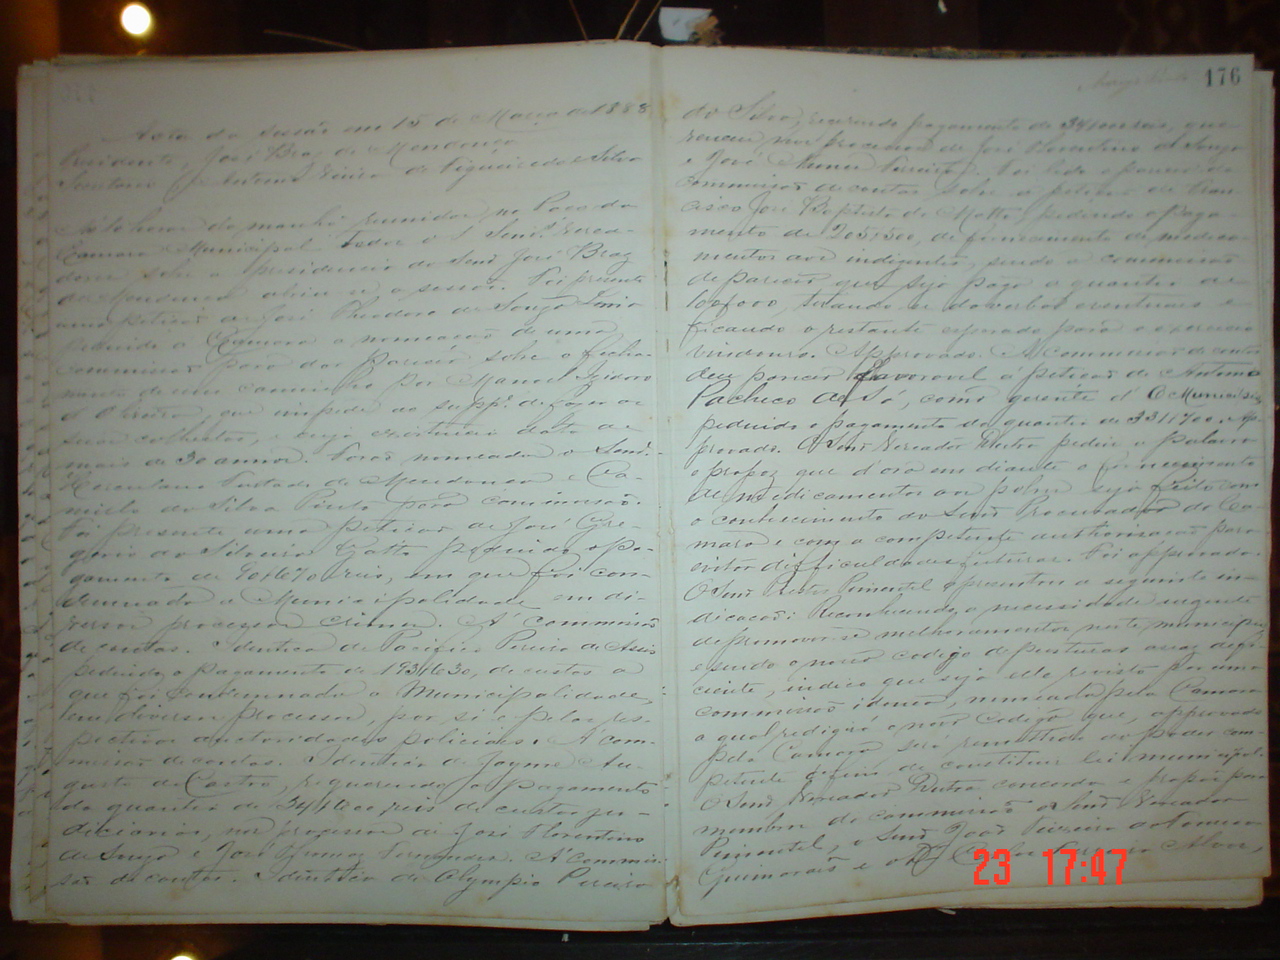 Acta da sessão em 15 de Março de 1888
Presidente, José Braz de Mendonça
Secretario, Antonio de Figueiredo e Silva
horas da manhã, reunidos, no Paço da
Camara Municipal todos os Senr.s Verea-
dores, sobre a presidencia do Senr José Braz
de Mendonça abriu-se a sessão. Foi presente
uma petição de José Theodoro de Souza
pedindo a Camara a nomeação de uma
commissão para dar parecer sobre o fecha-
mento de um caminho por Manoel Izidoro
d'Oliveira, que impede ao supp.e de fazer as
suas colheitas, e cuja existencia data de
mais de 30 annos. Foram nomeados os Senr.s
Furtado de Mendonça e Ca-
millo da Silva Pinto para commissão.
Foi presente uma petição de José Gre-
gorio da Silveira Gatto pedindo o pa-
gamento de reis, em que foi con-
demnada a Municipalidade em di-
versos processos crimes. Á commissão
de contas. Identica de Pacifico Pereira de Assis
pedindo o pagamento de 193$630, de custas a
que foi condemnada a Municipalidade,
em diversos processos, por si e pelas res-
pectivas autoridades policiaes. Á com-
missão de contas. Identica de Jayme Au-
gusto de Castro, requerendo o pagamento
da quantia de 34$600 reis de custas ju-
diciarias, nos processos de José Florentino
de Souza e José Fernandes. Á commis-
são de contas. Identica de Olympio Pereira
176
da Silva, requerendo pagamento de reis, que
venceu nos processos de José Florentino de Souza
e José Ferreira. Foi lido o parecer da
commissão de contas sobre a petição de Fran-
cisco José Baptista de Mattos, pedindo o paga-
mento de 205$500, de fornecimento de medica-
mentos aos indigentes, sendo a commissão
de parecer que seja paga a quantia de
100$000, tirando-se da verba eventuaes e
ficando o restante esperado para o exercicio
vindouro. Approvado. A commissão de contas
deu parecer favoravel á petição de Antonio
Pacheco de Sá, como gerente d'O Municipio,
pedindo o pagamento da quantia de 331$700. Ap-
provado. O Senr Vereador Dutra pediu a palavra
e propoz que d'ora em diante o fornecimento
de medicamentos aos pobres seja feito com
o conhecimento do Senr Procurador da Ca-
mara e com a competente authorisação para
evitar difficuldades futuras. Foi approvado.
O Senr Pimentel apresentou a seguinte in-
dicação: Reconhecendo a necessidade urgente
de promover-se melhoramentos neste municipio,
e sendo o nosso codigo de posturas assaz defi-
ciente, indico que seja elle revisto por uma
commissão idonea, nomeada pela Camara
a qual redigirá o novo Codigo que, approvado
pela Camara, será remettido ao poder com-
petente afim de constituir lei municipal.
O Senr Vereador Dutra concorda e propõe para
membros da commissão o Senr Vereador
Pimentel, o Senr João Teixeira da Fonseca
Guimarães e o Dr Carlos Alves,
23 17:47